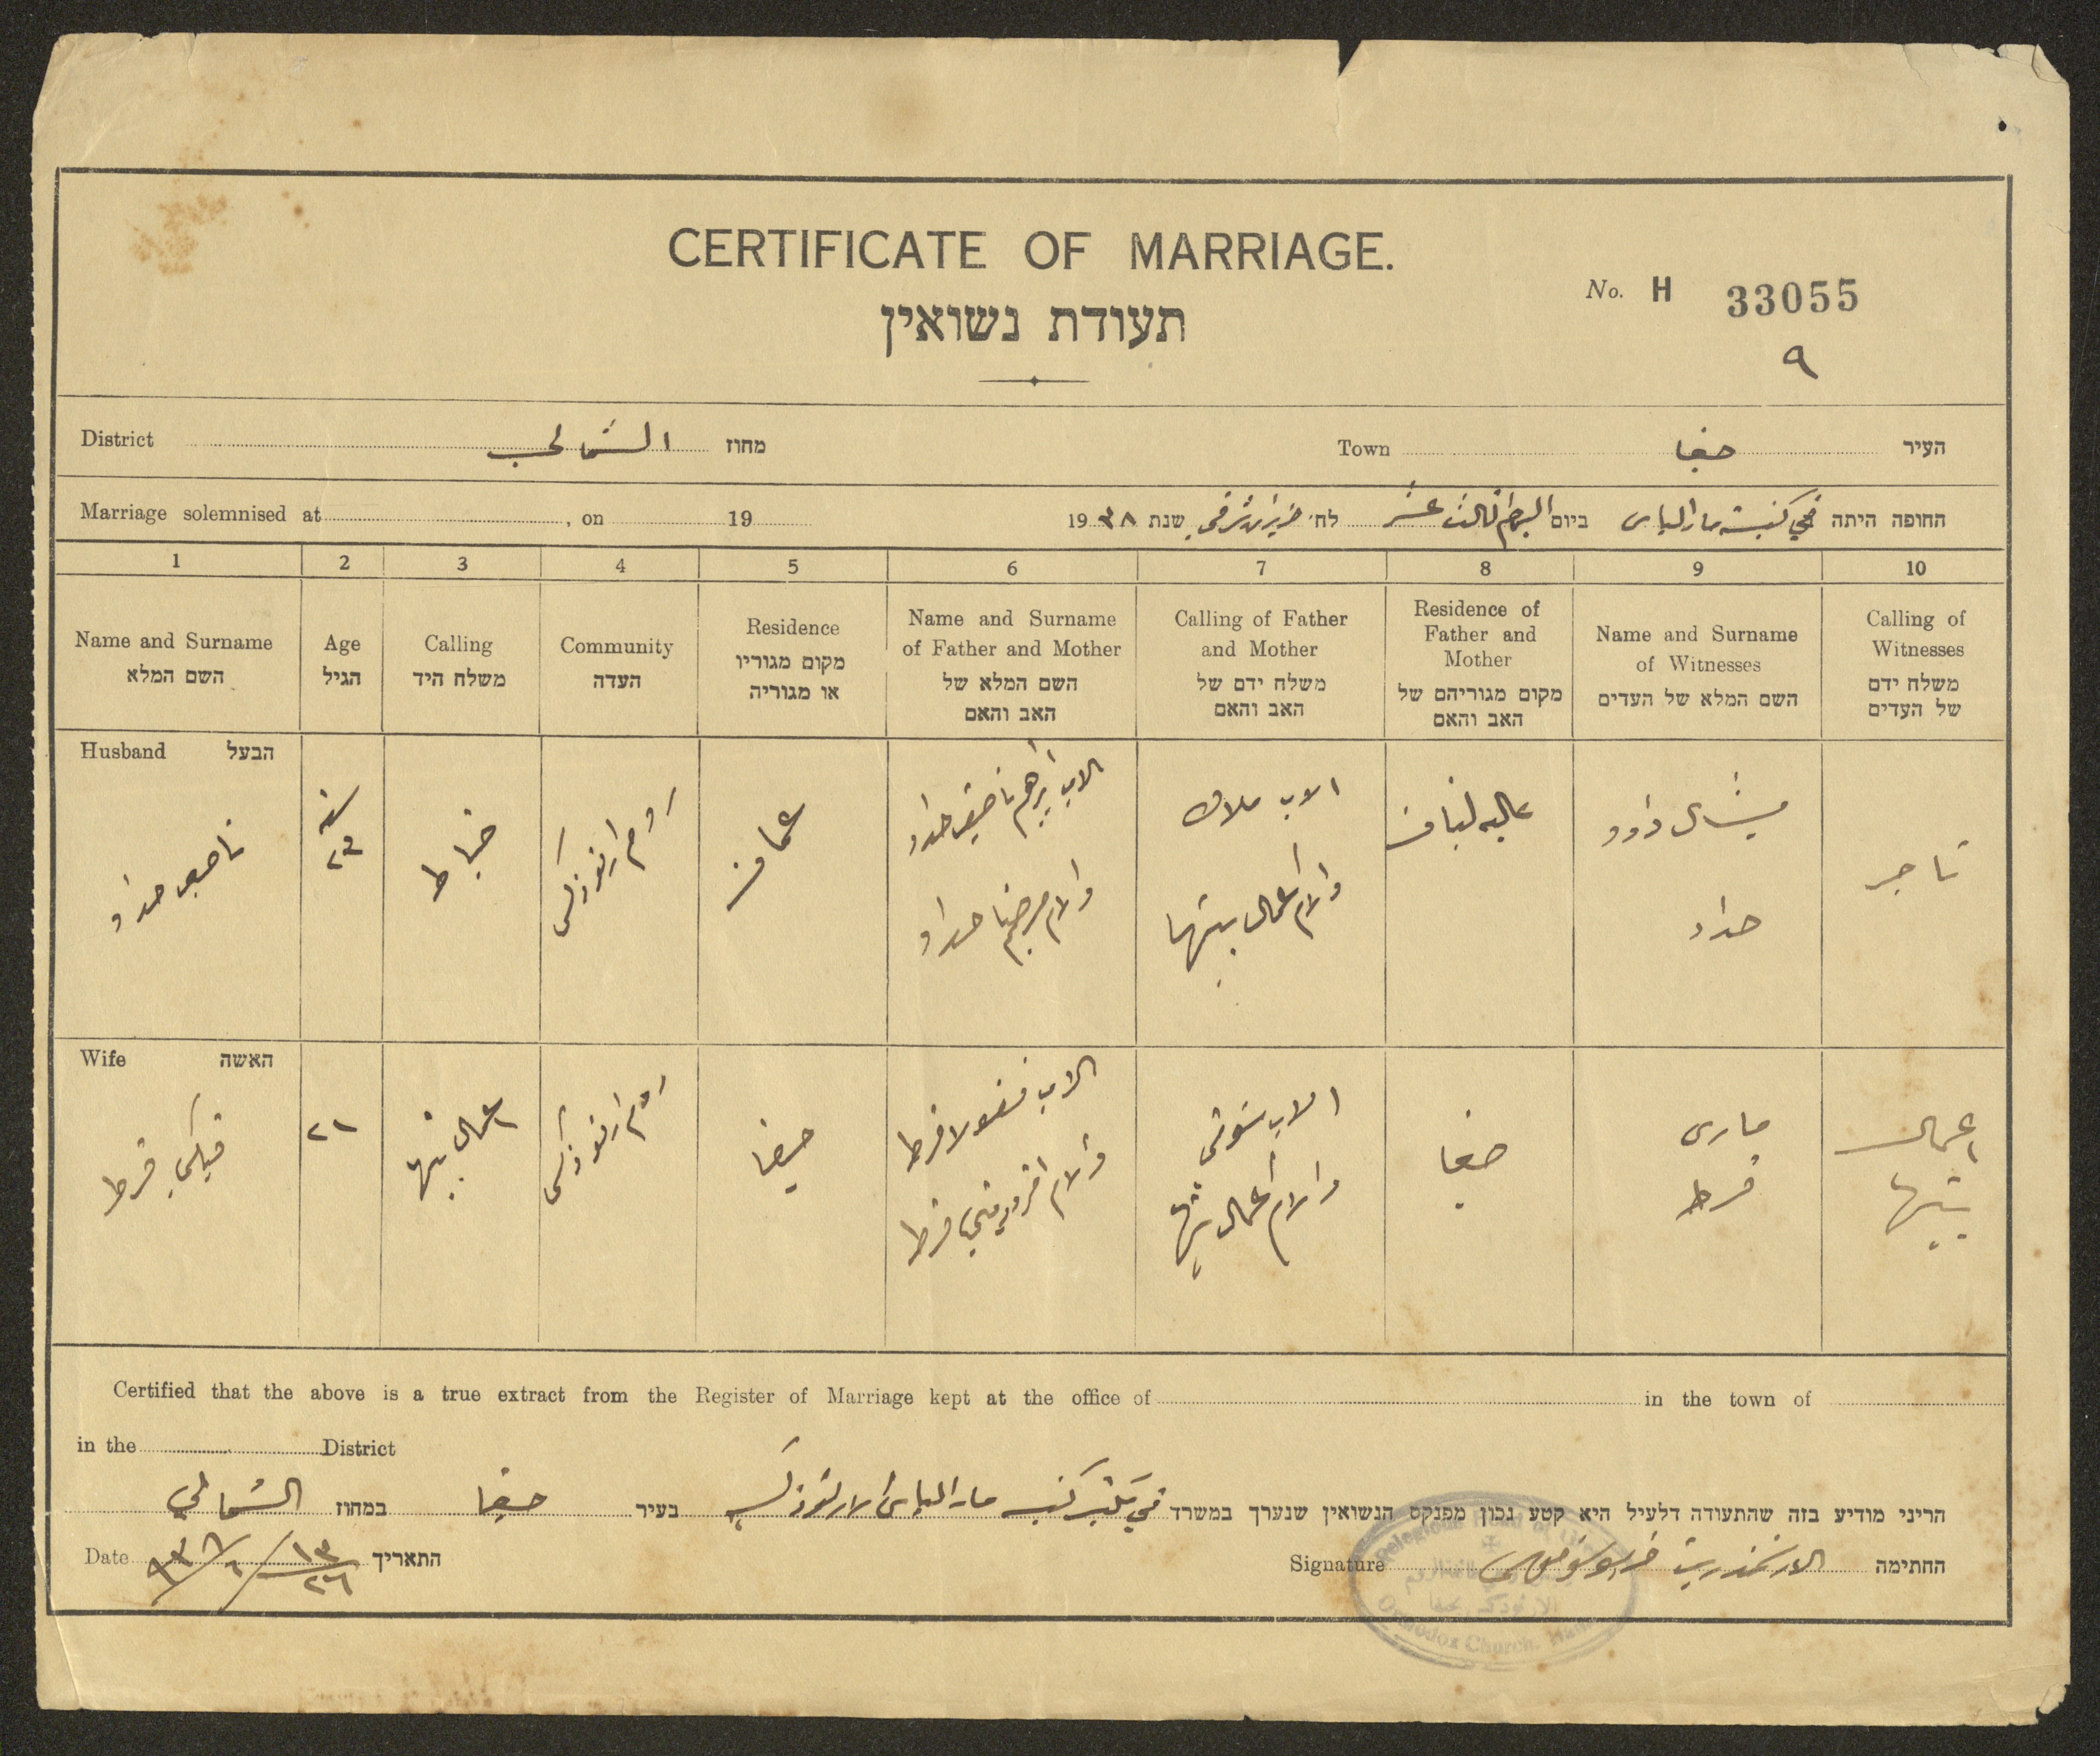 CERTIFICATE OF MARRIAGE.
תעודת נשואין
No. H 33055
٩
District الشمالي מחוז Town حيفا העיר
Marriage solemnised at , on 19
החופה היתה في كنيسة مار الياس ביום اليوم الثالث عشر לח׳ حزيران شرقي שנת 19٣٨
1 2 3 4 5 6 7 8 9 10
Name and Surname
השם המלא
Age
הגיל
Calling
משלח היד
Community
העדה
Residence
מקום מגוריו
או מגוריה
Name and Surname
of Father and Mother
השם המלא של
האב והאם
Calling of Father
and Mother
משלח ידם של
האב והאם
Residence of
Father and
Mother
מקום מגוריהם של
האב והאם
Name and Surname
of Witnesses
השם המלא של העדים
Calling of
Witnesses
משלח ידם
של העדים
Husband הבעל
ناصيف حداد
سنة
خياط
روم ارثوذكس
عمان
الاب ابراهيم ناصيف حداد
والام مرحبا حداد
الاب ملاك
والام اعمال بيتها
عاليه لبنان
ميشال داود
حداد
تاجر
Wife האשה
قرط
٢١
اعمال بيتها
روم ارثوذكس
حيفا
الاب نقولا قرط
والام قرط
الاب
والام اعمال بيتها
حيفا
ماري
قرط
اعمال
بيتها
Certified that the above is a true extract from the Register of Marriage kept at the office of in the town of
in the District
הריני מודיע בזה שהתעודה דלעיל היא קטע נכון מפנקס הנשואין שנערך במשרד في مكتب كنيسة مار الياس الارثوذكسية בעיר حيفا במחוז الشمالي
Date ١٣/٢٦ / ٦ / ٩٣٨ התאריך
Signature الارشمندريت החתימה
Orthodox Church, Haifa